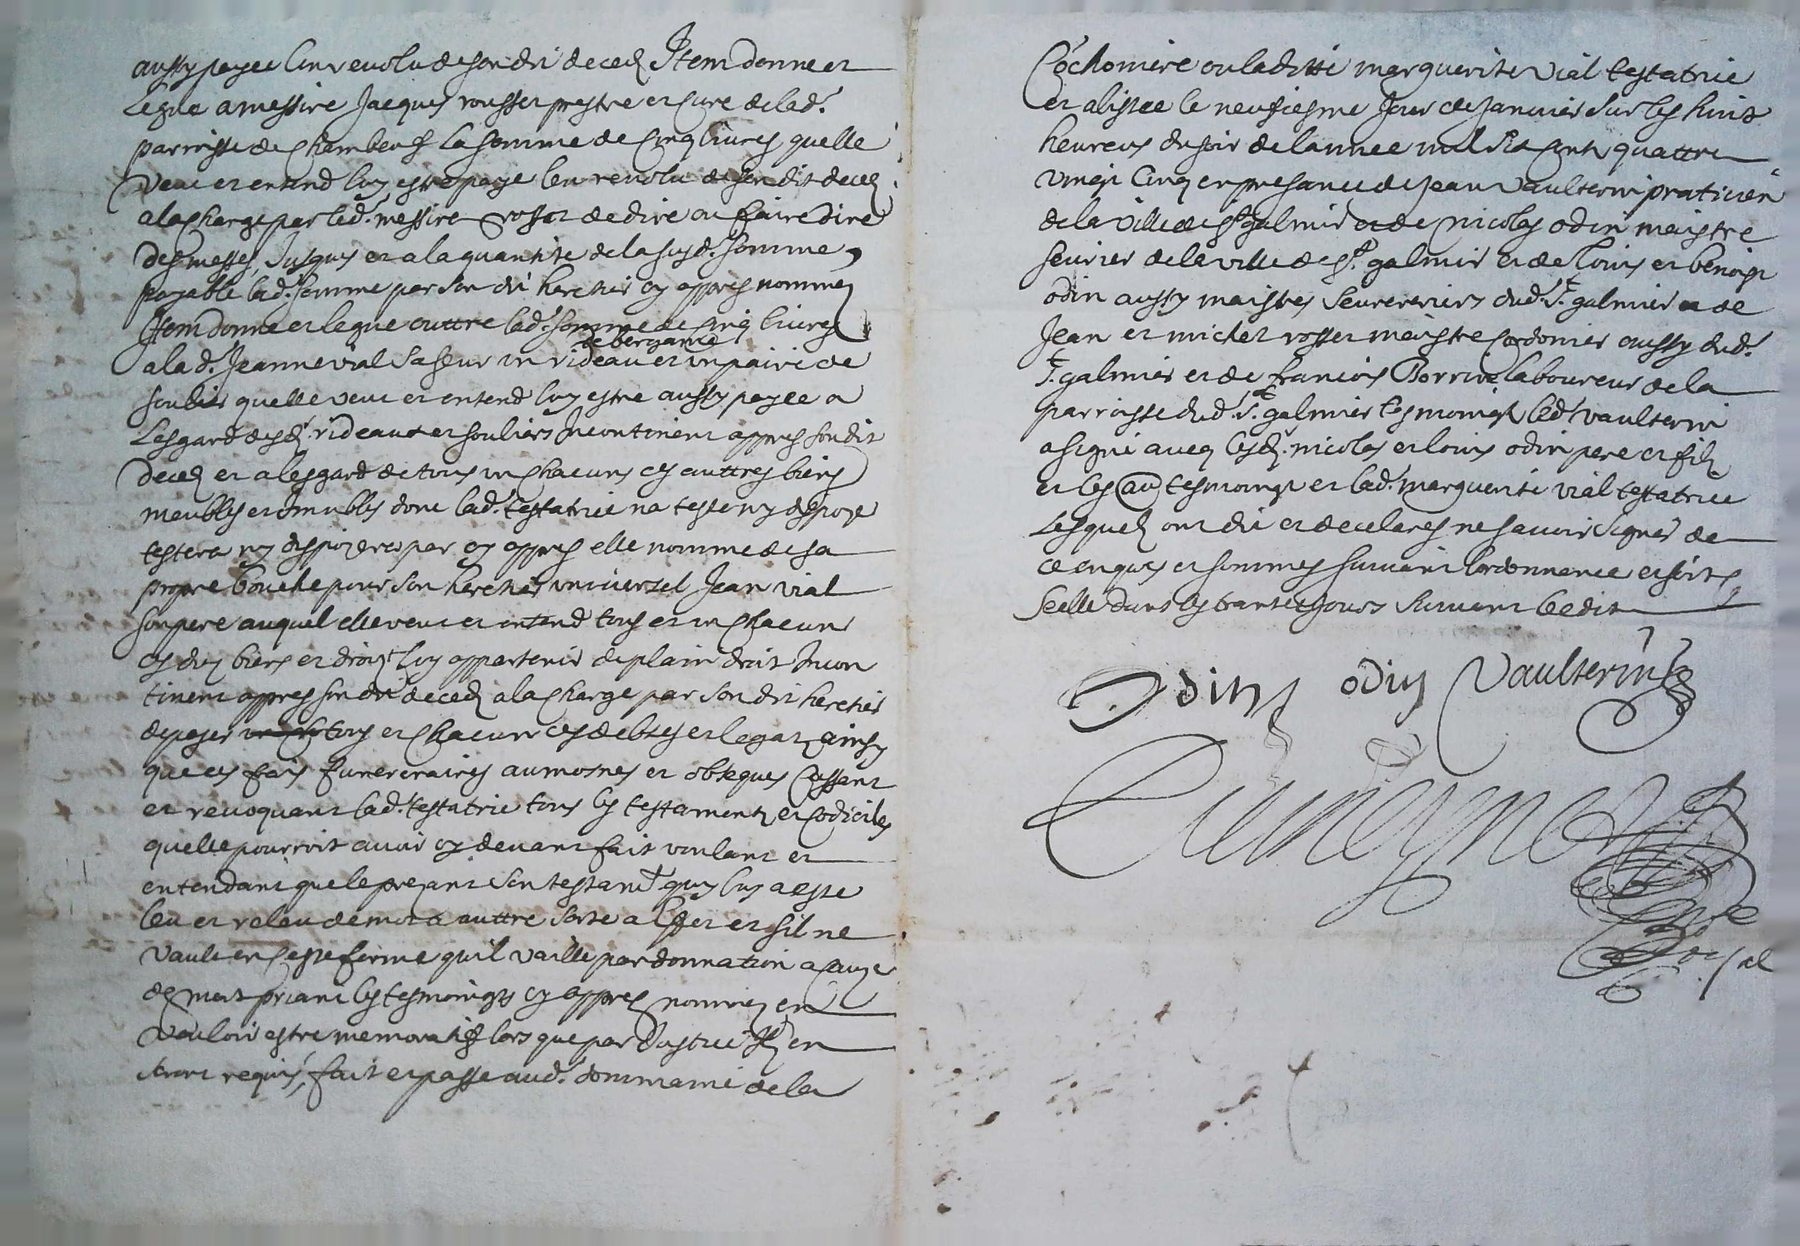 aussy payee l'an revolu de son dit deced Item donne et
Legue a messire Jacques rousset prestre et cure de lad.
parroisse de Chambeuf la somme de cinq livres quelle
veut et entend luy estre paye l'an revolu de son dit deced
a la charge par led. messire rosset de dire ou faire dire
des messes Jusques et a la quantite de la susd. somme
payable lad. somme par son dit heretier cy appres nomme
Item donne et legue outtre lad. somme de cinq livres
de bergame
a lad. Jeanne vial sa seur un rideau et un paire de
soulier quelle veut et entend luy estre aussy payee a
Lesgard desd. rideaut et souliers Incontinent appres son dit
deced et a lesgard de tous un chacuns ces auttres biens
meubles et Imubles dont lad. testatrice na teste ny dispoze
testera ny dispozera par cy appres elle nomme de sa
propre bouche pour son heretier universel Jean vial
son pere auquel elle veut et entend tous et un chacuns
cy dis biens et droits luy appartenir de plain droit Incon
tinent appres son dit deced a la charge par son dit heretier
de payer tous et chacuns ces debtes et legatz ainsy
que ces frais funereraires aumosnes et obseques Cassant
et revoquant lad. testatrice tous les testamentz et Codiciles
quelle pourroit avoir cy devant fait voulant et
entendant que le prezant son testamt. quy luy a este
leu et releu de mot a auttre sorte a effet et sil ne
vault en ceste forme qu'il vaille par donnation a cauze
de mort priant les tesmoings cy appres nommez en
vouloir estre memoratifs lors que par Justice Ilz en
seront requis, fait et passe aud. dommaine de la
Cochoniere ou laditte marguerite vial testatrice
et alistee le neufiesme Jour de Janvier sur les huit
heures du soir de lannee mil six cents quattre
vingt cinq en presance de Jean vaulterin praticien
de la ville de St. galmier de nicolas odin maistre
seurier de la ville de St. galmier et de Louis et benoist
odin aussy maistres seurereriers dud. St. galmier de
Jean et michel rosset maistre Cordonier aussy dud.
St. galmier et de francois Borrive laboureur de la
parroisse dud. St. galmier tesmoings led. vaulterin
a signe avec lesd. nicolas et louis odin pere et filz
et les autres tesmoings et lad. marguerite vial testatrice
Lesquelz ont dit et declares ne savoir signer de
ce enquis et sommes suivant lordonnance et soit
scelle dans les trante jours suivant ledit
Odin odin Vaulterin